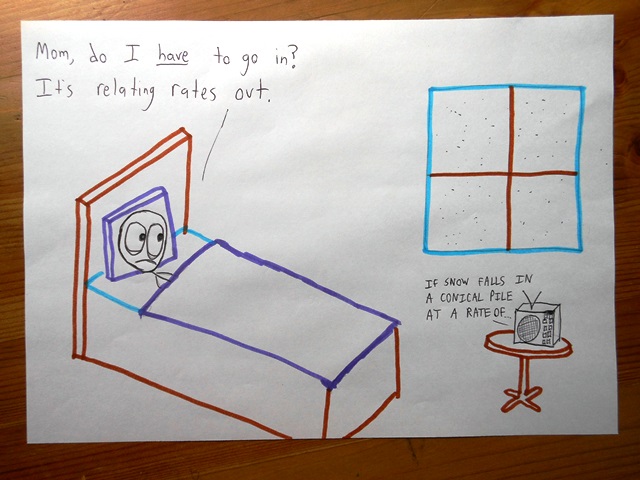 Mom, do I have to go in?
It's relating rates out.
IF SNOW FALLS IN
A CONICAL PILE
AT A RATE OF...